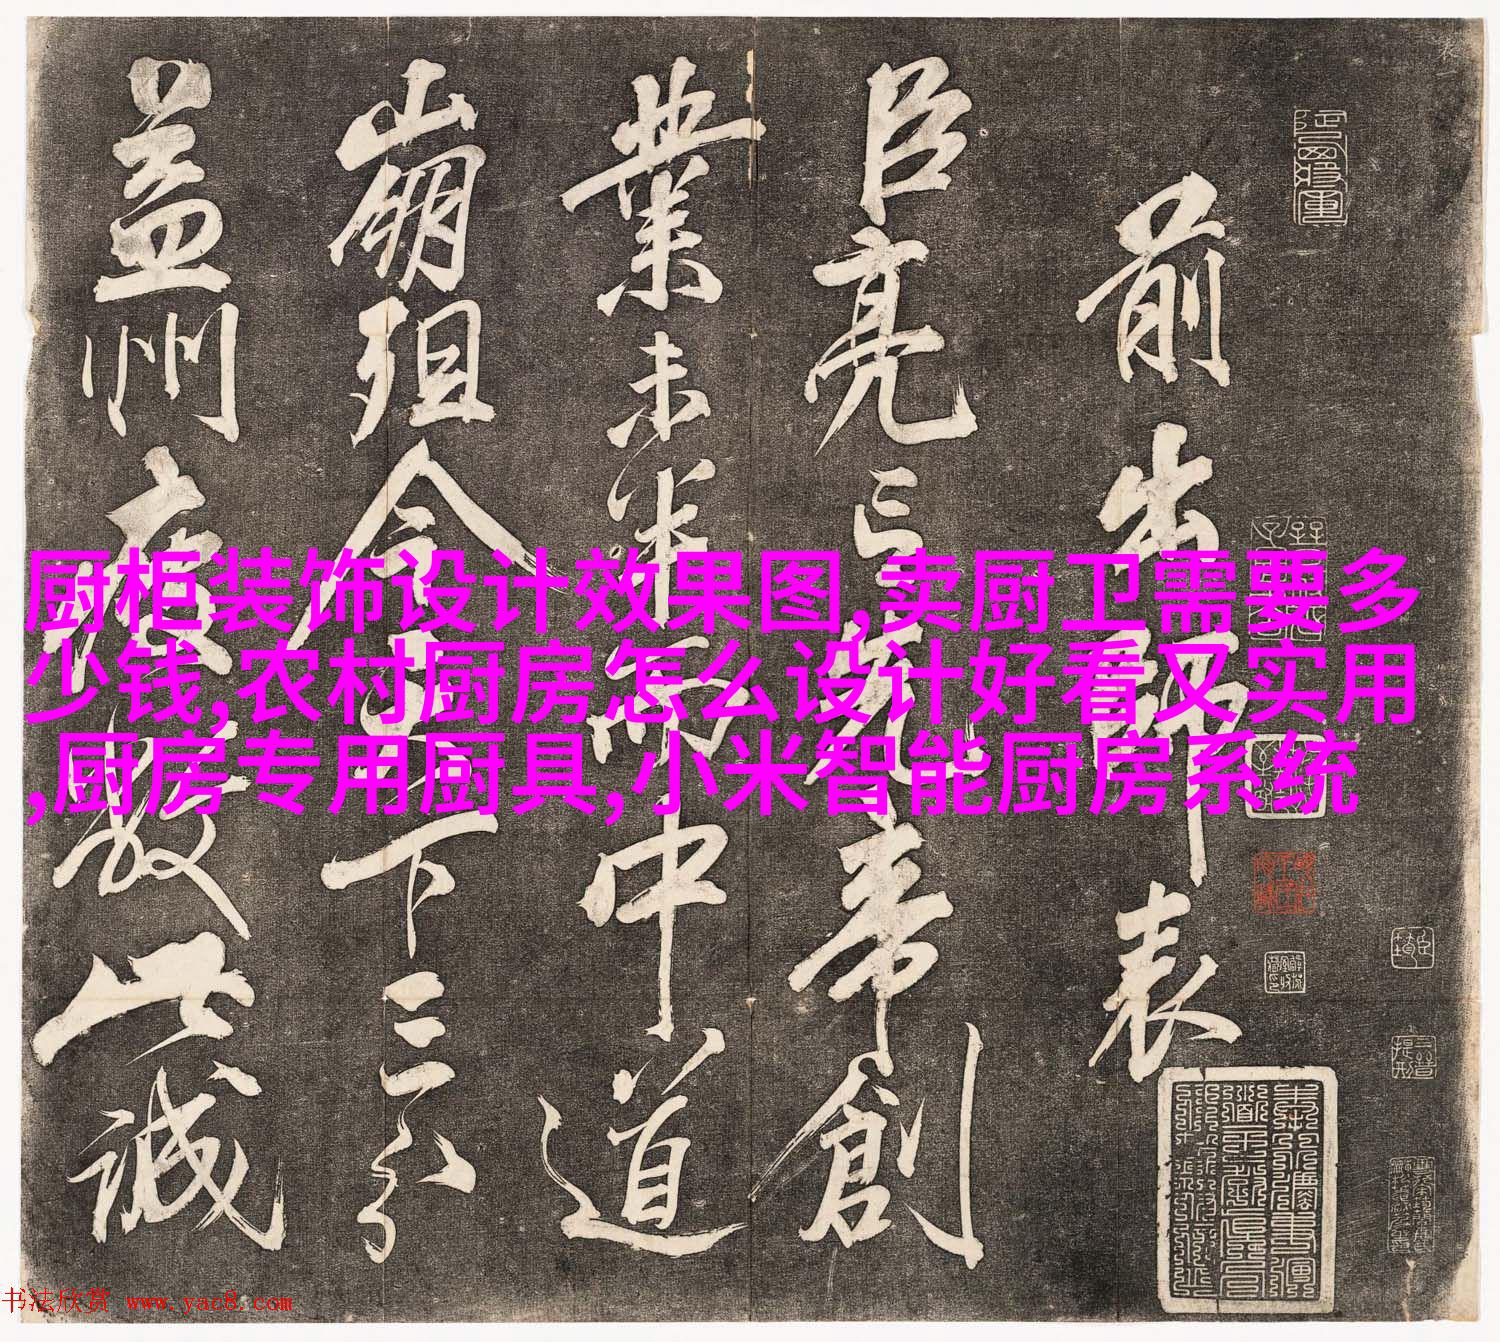 前出師表
臣亮言先帝創
業未半而中道
崩殂今天下三分
益州疲敝此誠
厨柜装饰设计效果图,卖厨卫需要多
少钱,农村厨房怎么设计好看又实用
,厨房专用厨具,小米智能厨房系统
书法欣赏 www.yac8.com